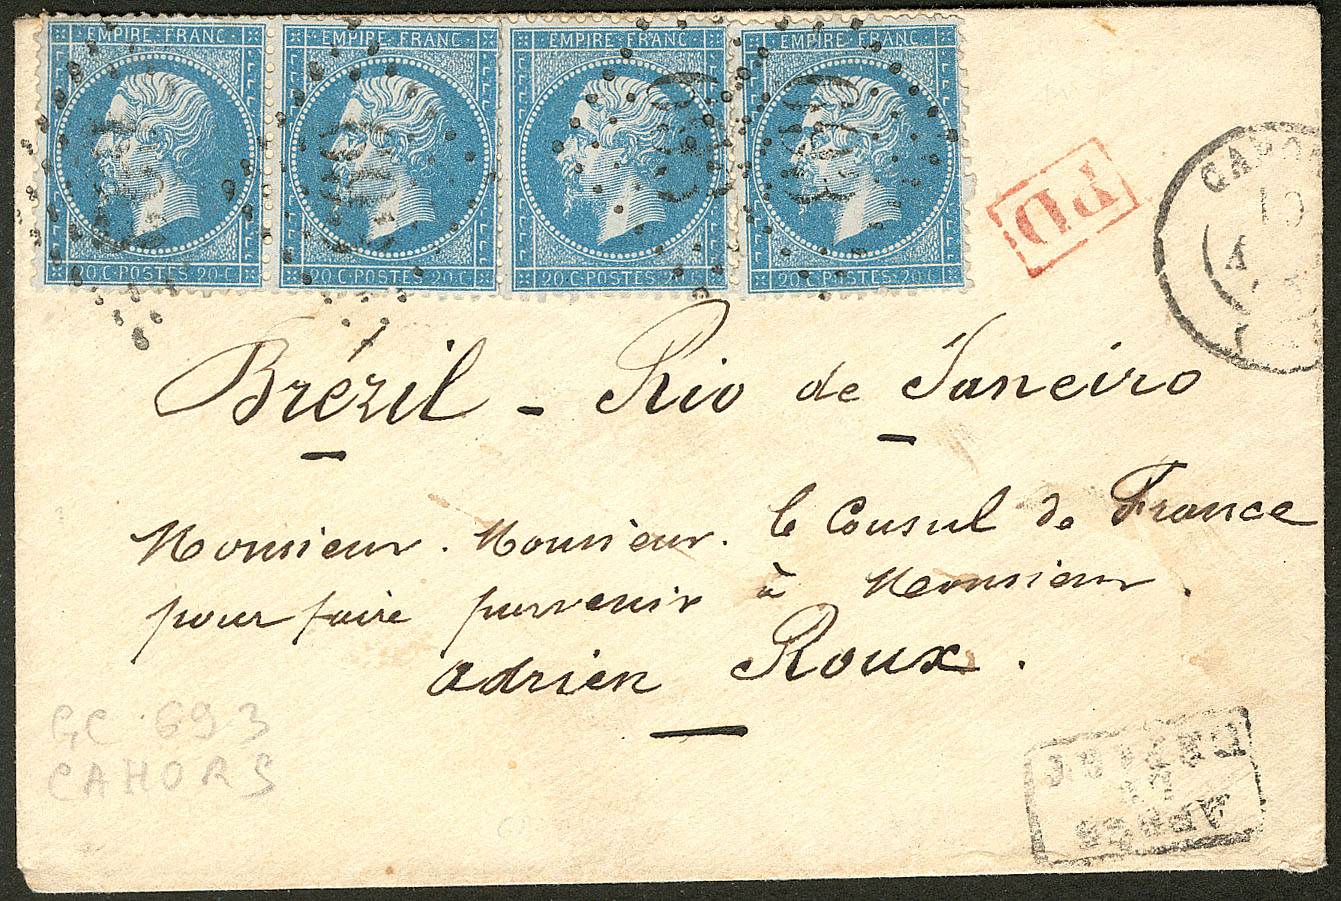 EMPIRE FRANC EMPIRE FRANC EMPIRE FRANC EMPIRE FRANC
20.C POSTES 20.C 20.C POSTES 20.C 20.C POSTES 20.C 20.C POSTES 20.C
PD
Brézil - Rio de Janeiro
Monsieur. Monsieur. le Consul de France
pour faire parvenir à Monsieur.
Adrien Roux.
GC 693
CAHORS
APRES